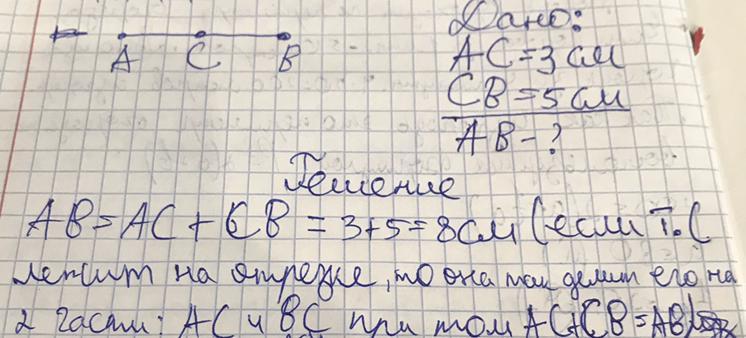 Дано:
A C B
AC = 3 см
CB = 5 см
AB - ?
Решение
AB = AC + CB = 3+5 = 8 см (если т. C
лежит на отрезке, то она так делит его на
2 части: AC и BC при том AC+CB=AB)